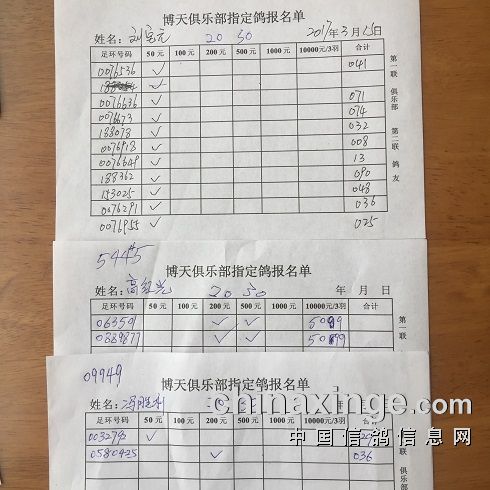 博天俱乐部指定鸽报名单
姓名：刘宝元 20 30 2017年3月15日
足环号码 50元 100元 200元 500元 1000元 10000元/3羽 合计
0076536 ✓ 041
✓
0076636 ✓ 071
0076673 ✓ 074
188078 ✓ 032
0076918 ✓ 008
0076649 ✓ 13
188362 ✓ 090
153025 ✓ 048
0076291 ✓ 036
0076955 ✓ 025
第一联 俱乐部 第二联 鸽友
5445
博天俱乐部指定鸽报名单
姓名：高红光 20 30 年 月 日
足环号码 50元 100元 200元 500元 1000元 10000元/3羽 合计
063501 ✓ ✓
0889877 ✓ ✓
第一联
09949
博天俱乐部指定鸽报名单
姓名：冯胜利
足环号码 50元 100元 200元 500元
0032793 ✓
0580425 ✓ 036
俱乐部
chinaxinge.com
中国信鸽信息网